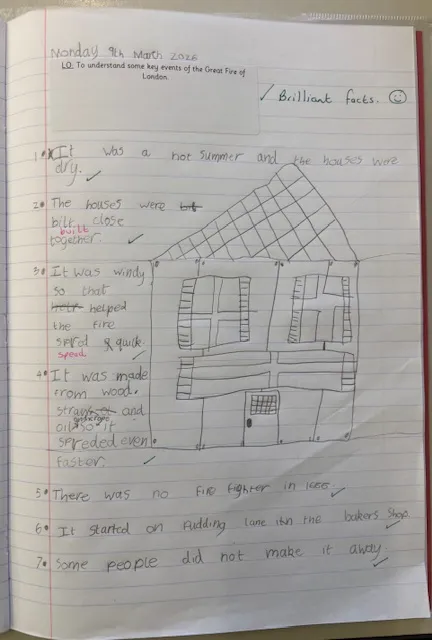 Monday 9th March 2026
LO: To understand some key events of the Great Fire of
London.
✓ Brilliant facts. ☺
1• It was a hot summer and the houses were
dry. ✓
2• The houses were
bilt close
built
together. ✓
3• It was windy
so that
helped
the fire
spred & quick.
spead ✓
4• It was made
from wood.
straw and
oil so it
spreded even
faster. ✓
5• There was no fire fighter in 1666 ✓
6• It started on Pudding lane in the bakers shop. ✓
7• Some people did not make it away. ✓